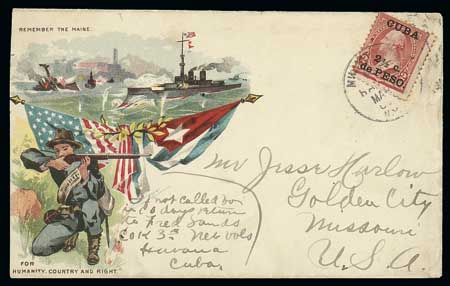 REMEMBER THE MAINE.
CUBA
2½ c.
de PESO.
Mr Jesse Harlow
Golden City
Missouri
U.S.A.
If not called for
in 60 days return
to Fred Sands
Co K 3rd Neb Vols
Havana
Cuba.
FOR
HUMANITY, COUNTRY AND RIGHT.